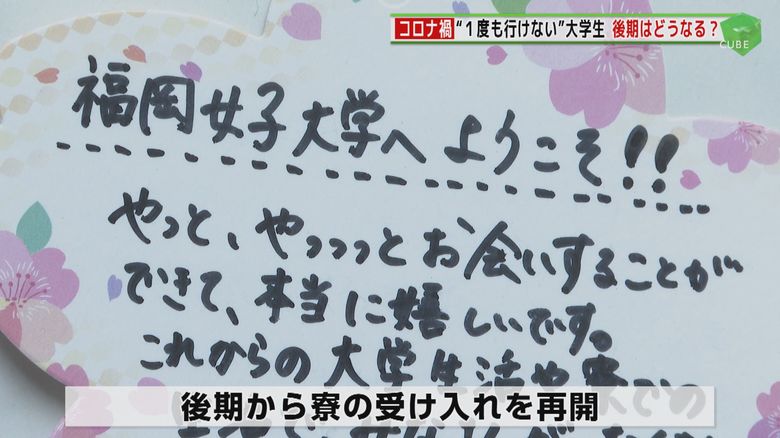 コロナ禍 “１度も行けない”大学生 後期はどうなる？
CUBE
福岡女子大学へ ようこそ！！
やっと、やっっっとお会いすることが
できて、本当に嬉しいです。
これからの大学生活や寮での
後期から寮の受け入れを再開